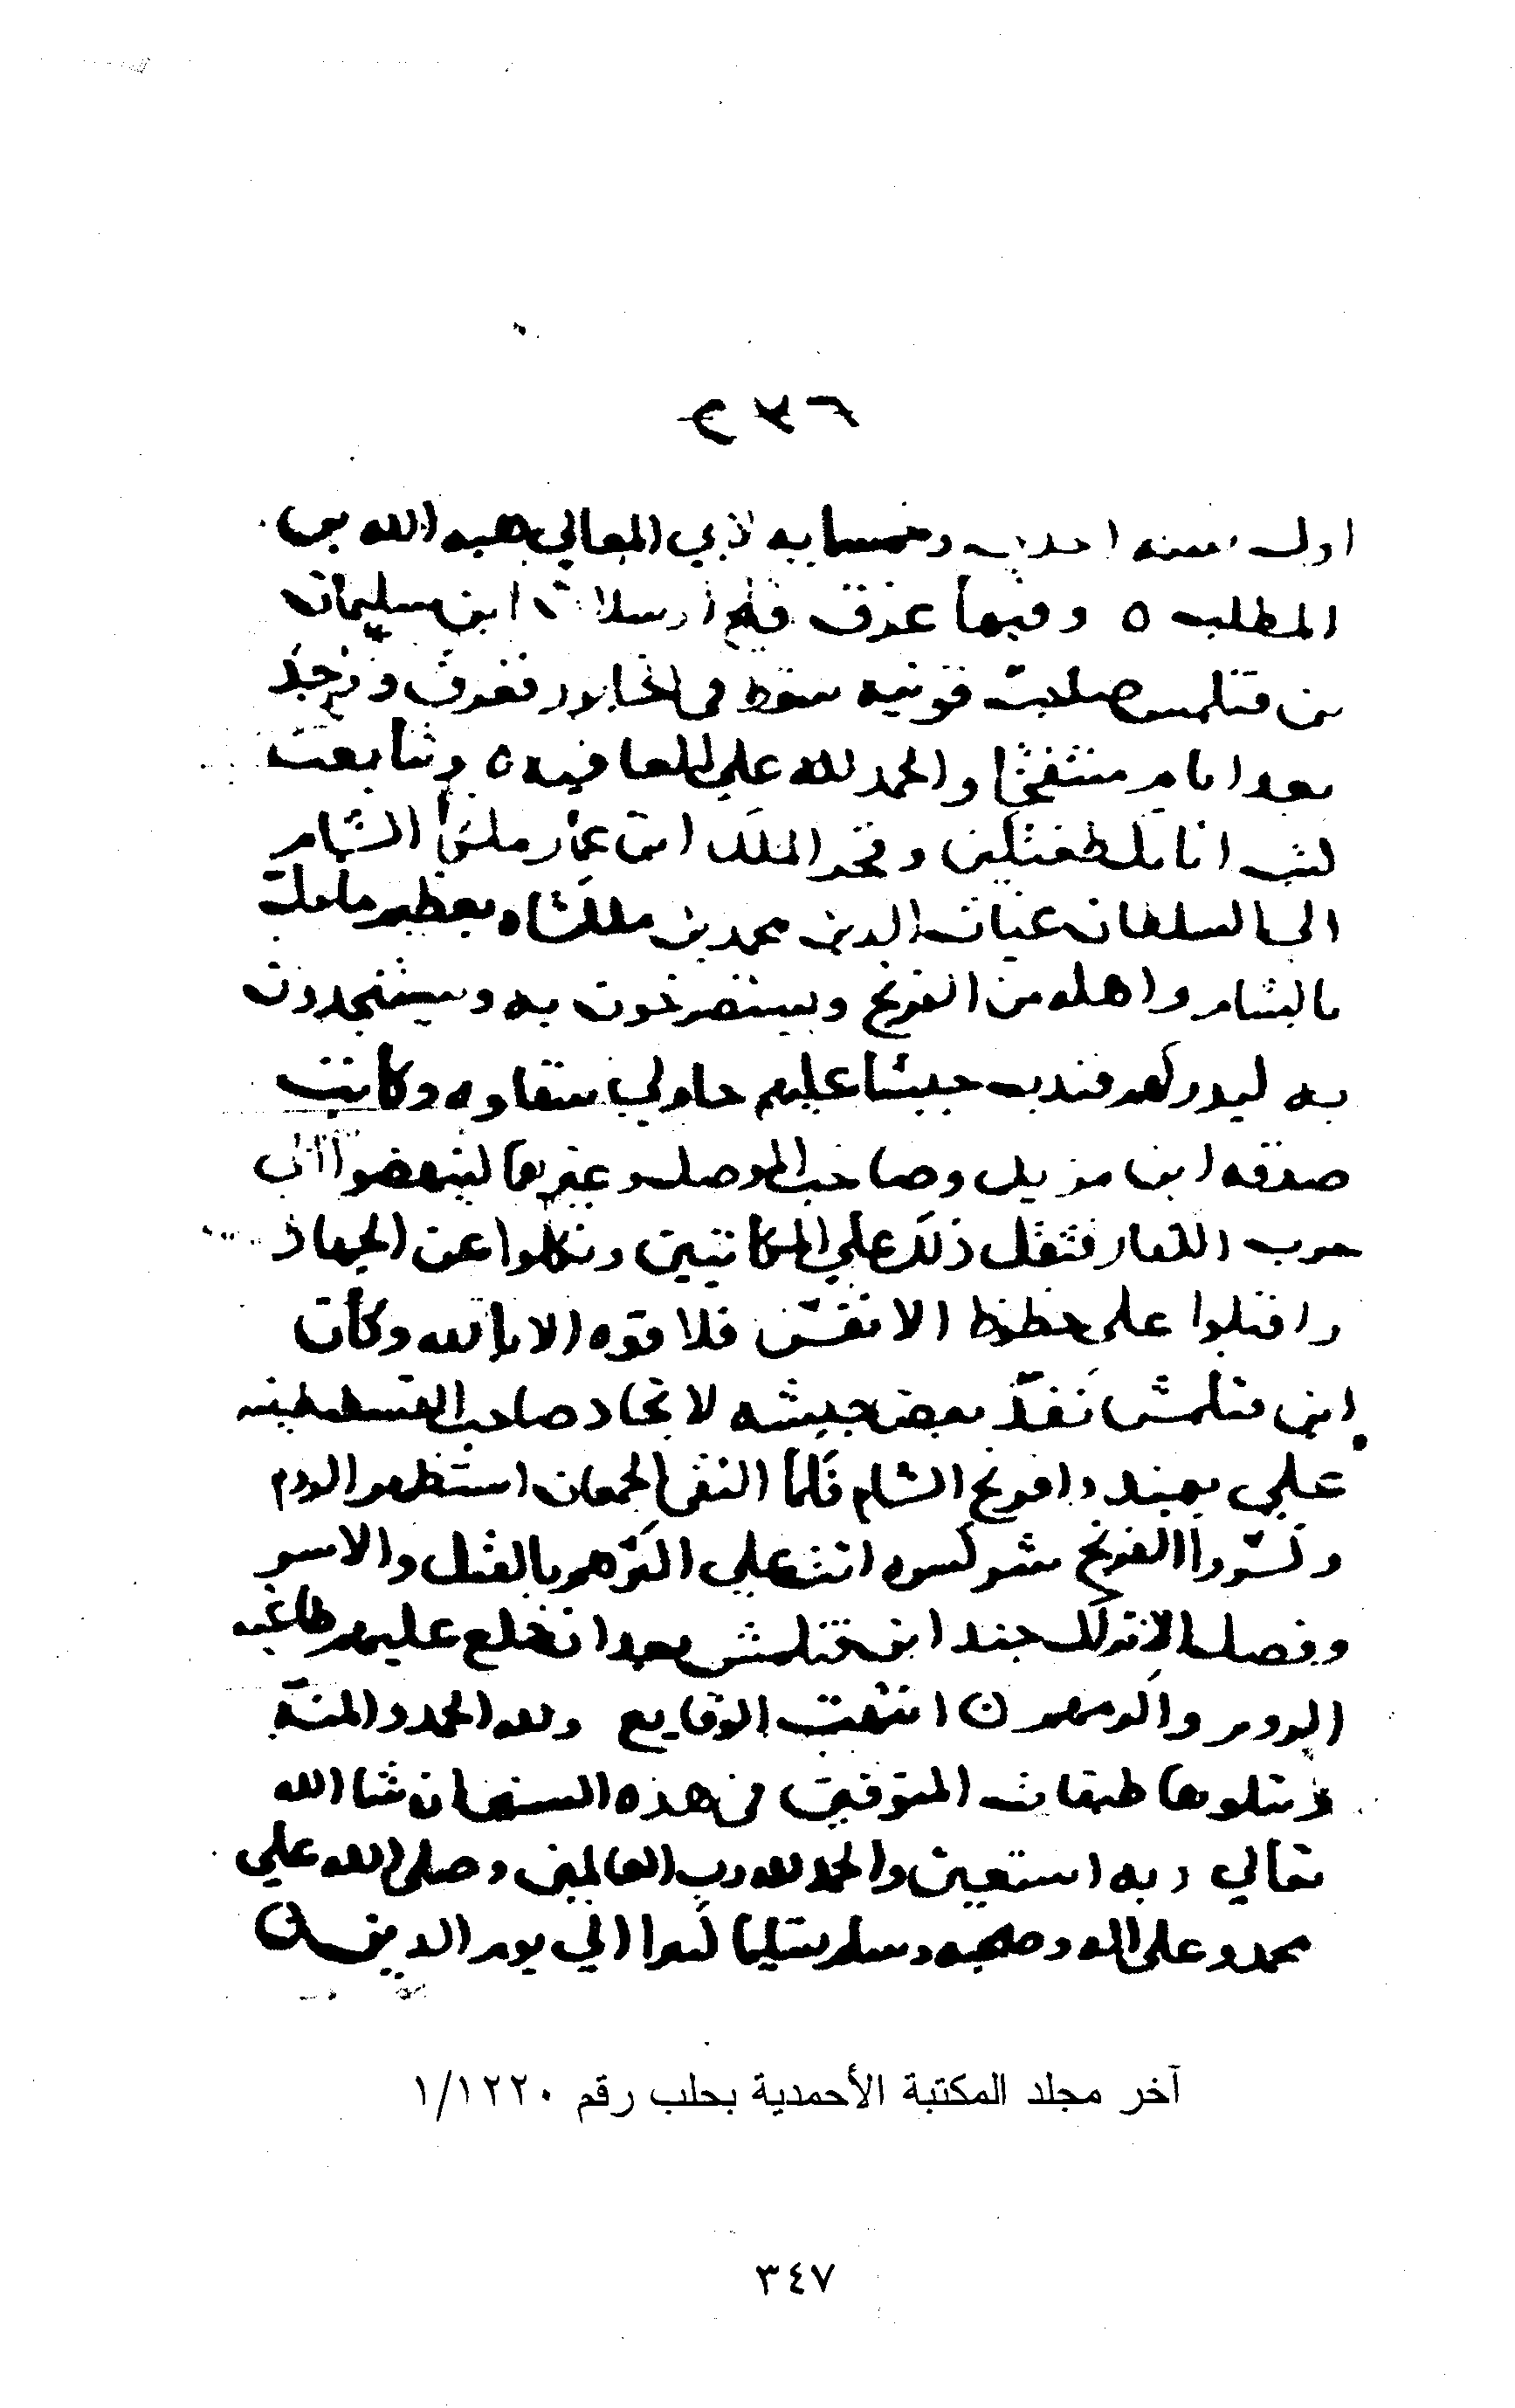 ٢٣٦
اول سنه احدى وخمسمايه لابي المعالي هبه الله بن
المطلب ٥ وفيها غرق قلج ارسلان ابن سليمان
بن قتلمس صاحب قونيه سقط في الخابور فغرق ووجد
بعد ايام منتفخا والحمد لله على العافيه ٥ وتتابعت
كتب اتابك طغتكين وفخر الملك ابن عمار ملكي الشام
الى السلطان غياث الدين محمد بن ملكشاه بعظيم ما حل
بالشام واهله من الفرنج ويستصرخون به ويستنجدون
به ليدركهم فندب جيشا عليهم جاولي سقاوه وكاتب
صدقه ابن مزيد وصاحب الموصل وغيرها لينهضوا الى
حرب الكفار فثقل ذلك على المكاتبين ونكلوا عن الجهاد
واقبلوا على حظوظ الانفس فلا قوه الا بالله وكان
ابن قتلمش نفذ بعض جيشه لانجاد صاحب القسطنطينيه
على بيمند وافرنج الشام فلما التقى الجمعان استظهر الروم
وكسروا الفرنج شر كسره اتت على اكثرهم بالقتل والاسر
وفصل الاتراك جند ابن قتلمش بعد ان خلع عليهم طاغيه
الروم واكرمهم ن انتهت الوقايع ولله الحمد والمنة
ويتلوها طبقات المتوفين في هذه السنين ان شا الله
تعالى وبه استعين والحمد لله رب العالمين وصلى الله على
محمد وعلى اله وصحبه وسلم تسليما كثيرا الى يوم الدين ن
آخر مجلد المكتبة الأحمدية بحلب رقم ١/١٢٢٠
٣٤٧